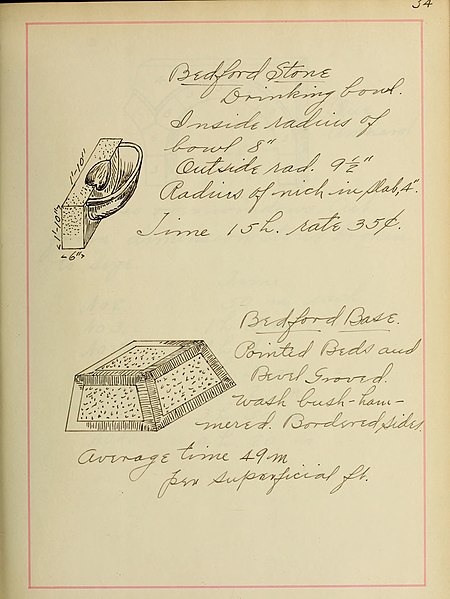 34
Bedford Stone
Drinking bowl.
Inside radius of
bowl 8"
Outside rad. 9½"
Radius of nich in slab, 4".
Time 15h. rate 35¢.
1'-10"
1'-10"
6"
Bedford Base.
Pointed Beds and
Bevel Groved.
Wash bush-ham-
mered. Bordered sides.
Average time 49 m
per superficial ft.